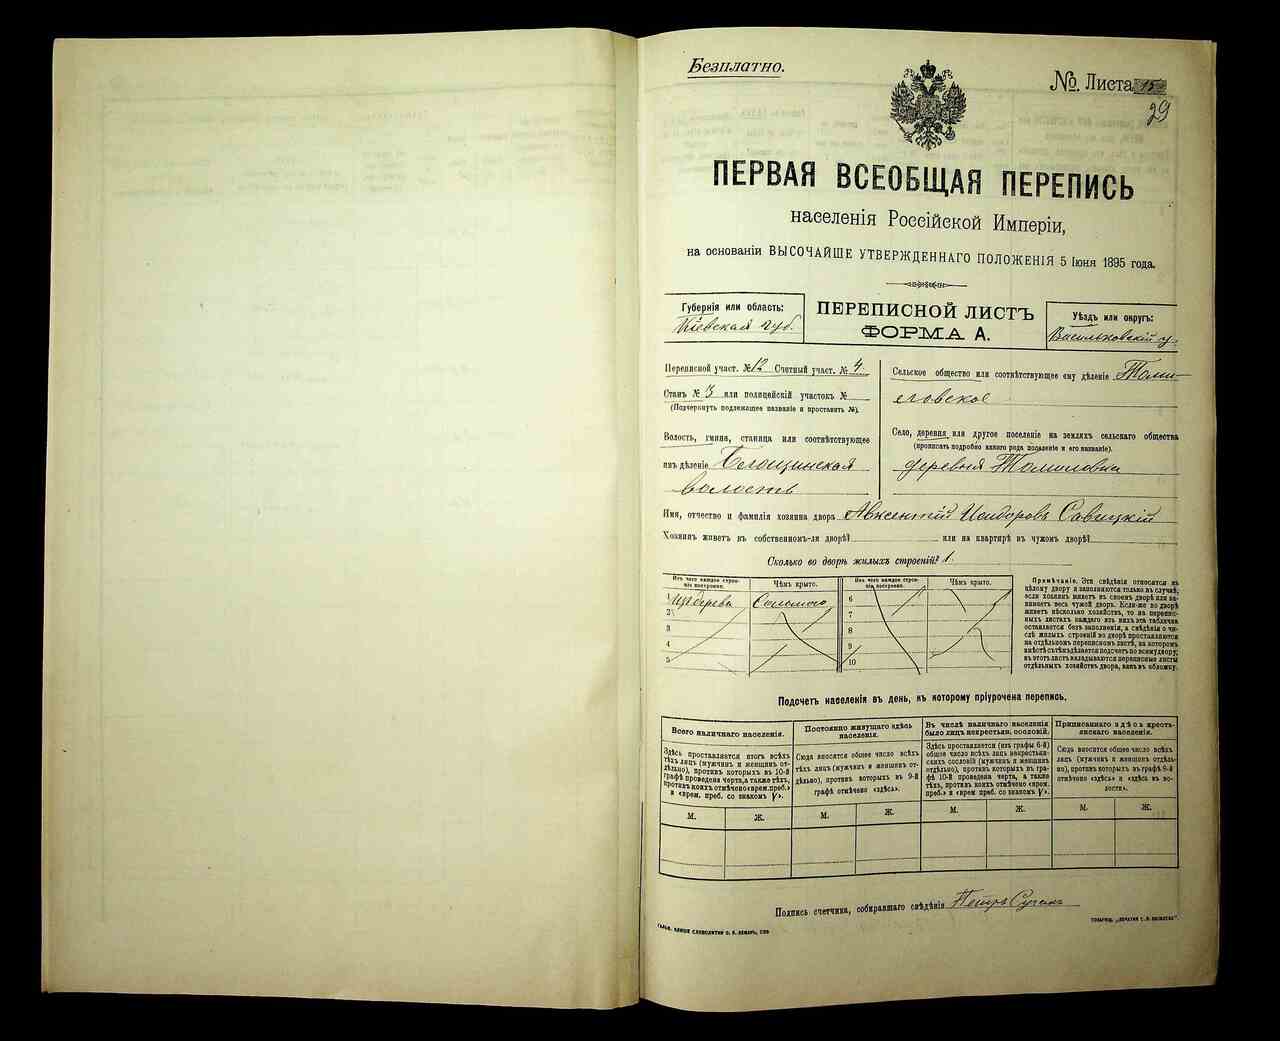 Безплатно.
№. Листа 15
29
ПЕРВАЯ ВСЕОБЩАЯ ПЕРЕПИСЬ
населенія Россійской Имперіи,
на основаніи ВЫСОЧАЙШЕ УТВЕРЖДЕННАГО ПОЛОЖЕНІЯ 5 Іюня 1895 года.
Губернія или область:
Кіевская губ.
ПЕРЕПИСНОЙ ЛИСТЪ
ФОРМА А.
Уѣздъ или округъ:
Васильковскій у.
Переписной участ. № 12 Счетный участ. № 4
Станъ № 3 или полицейскій участокъ №
(Подчеркнуть подлежащее названіе и проставить №).
Волость, гмина, станица или соотвѣтствующее
имъ дѣленіе
волость
Сельское общество или соотвѣтствующее ему дѣленіе Томи-
ловское
Село, деревня или другое поселеніе на земляхъ сельскаго общества
(прописать подробно какого рода поселеніе и его названіе).
деревня Томиловка
Имя, отчество и фамилія хозяина двора Авксентій Исидоровъ Савицкій
Хозяинъ живетъ въ собственномъ-ли дворѣ? или на квартирѣ въ чужомъ дворѣ?
Сколько во дворѣ жилыхъ строеній? 1.
Изъ чего каждое строе-
ніе построено.
Чѣмъ крыто.
Изъ чего каждое строе-
ніе построено.
Чѣмъ крыто.
1 Изъ дерева Соломою
2
3
4
5
6
7
8
9
10
Примѣчаніе. Эти свѣдѣнія относятся къ
цѣлому двору и заполняются только въ случаѣ,
если хозяинъ живетъ въ своемъ дворѣ или за-
нимаетъ весь чужой дворъ. Если-же во дворѣ
живетъ нѣсколько хозяйствъ, то на перепис-
ныхъ листахъ каждаго изъ нихъ эта табличка
оставляется безъ заполненія, а свѣдѣнія о чи-
слѣ жилыхъ строеній во дворѣ проставляются
на отдѣльномъ переписномъ листѣ, на которомъ
вмѣстѣ съ тѣмъ дѣлается подсчетъ по всему двору;
въ этотъ листъ вкладываются переписные листы
отдѣльныхъ хозяйствъ двора, какъ въ обложку.
Подсчетъ населенія въ день, къ которому пріурочена перепись.
Всего наличнаго населенія.
Здѣсь проставляется итогъ всѣхъ
тѣхъ лицъ (мужчинъ и женщинъ от-
дѣльно), противъ которыхъ въ 10-й
графѣ проведена черта, а также тѣхъ,
противъ коихъ отмѣчено «врем. преб.»
и «врем. преб. со знакомъ V».
Постоянно живущаго здѣсь
населенія.
Сюда вносится общее число всѣхъ
тѣхъ лицъ (мужчинъ и женщинъ от-
дѣльно), противъ которыхъ въ 9-й
графѣ отмѣчено «здѣсь».
Въ числѣ наличнаго населенія
было лицъ некрестьян. сословій.
Здѣсь проставляется (изъ графы 6-й)
общее число всѣхъ некрестьян-
скихъ сословій (мужчинъ и женщинъ
отдѣльно), противъ которыхъ въ гра-
фѣ 10-й проведена черта, а также
тѣхъ, противъ коихъ отмѣчено «врем.
преб.» и «врем. преб. со знакомъ V».
Приписаннаго здѣсь кресть-
янскаго населенія.
Сюда вносится общее число всѣхъ
лицъ (мужчинъ и женщинъ отдѣль-
но), противъ которыхъ въ графѣ 8-й
отмѣчено «здѣсь» и «здѣсь въ во-
лости».
М. Ж. М. Ж. М. Ж. М. Ж.
Подпись счетчика, собиравшаго свѣдѣнія Петръ